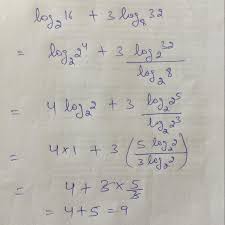 log₂16 + 3 log₈32
= log₂2⁴ + 3 log₂32 / log₂8
= 4 log₂2 + 3 log₂2⁵ / log₂2³
= 4×1 + 3 (5 log₂2 / 3 log₂2)
= 4 + 3 × 5/3
= 4+5 = 9